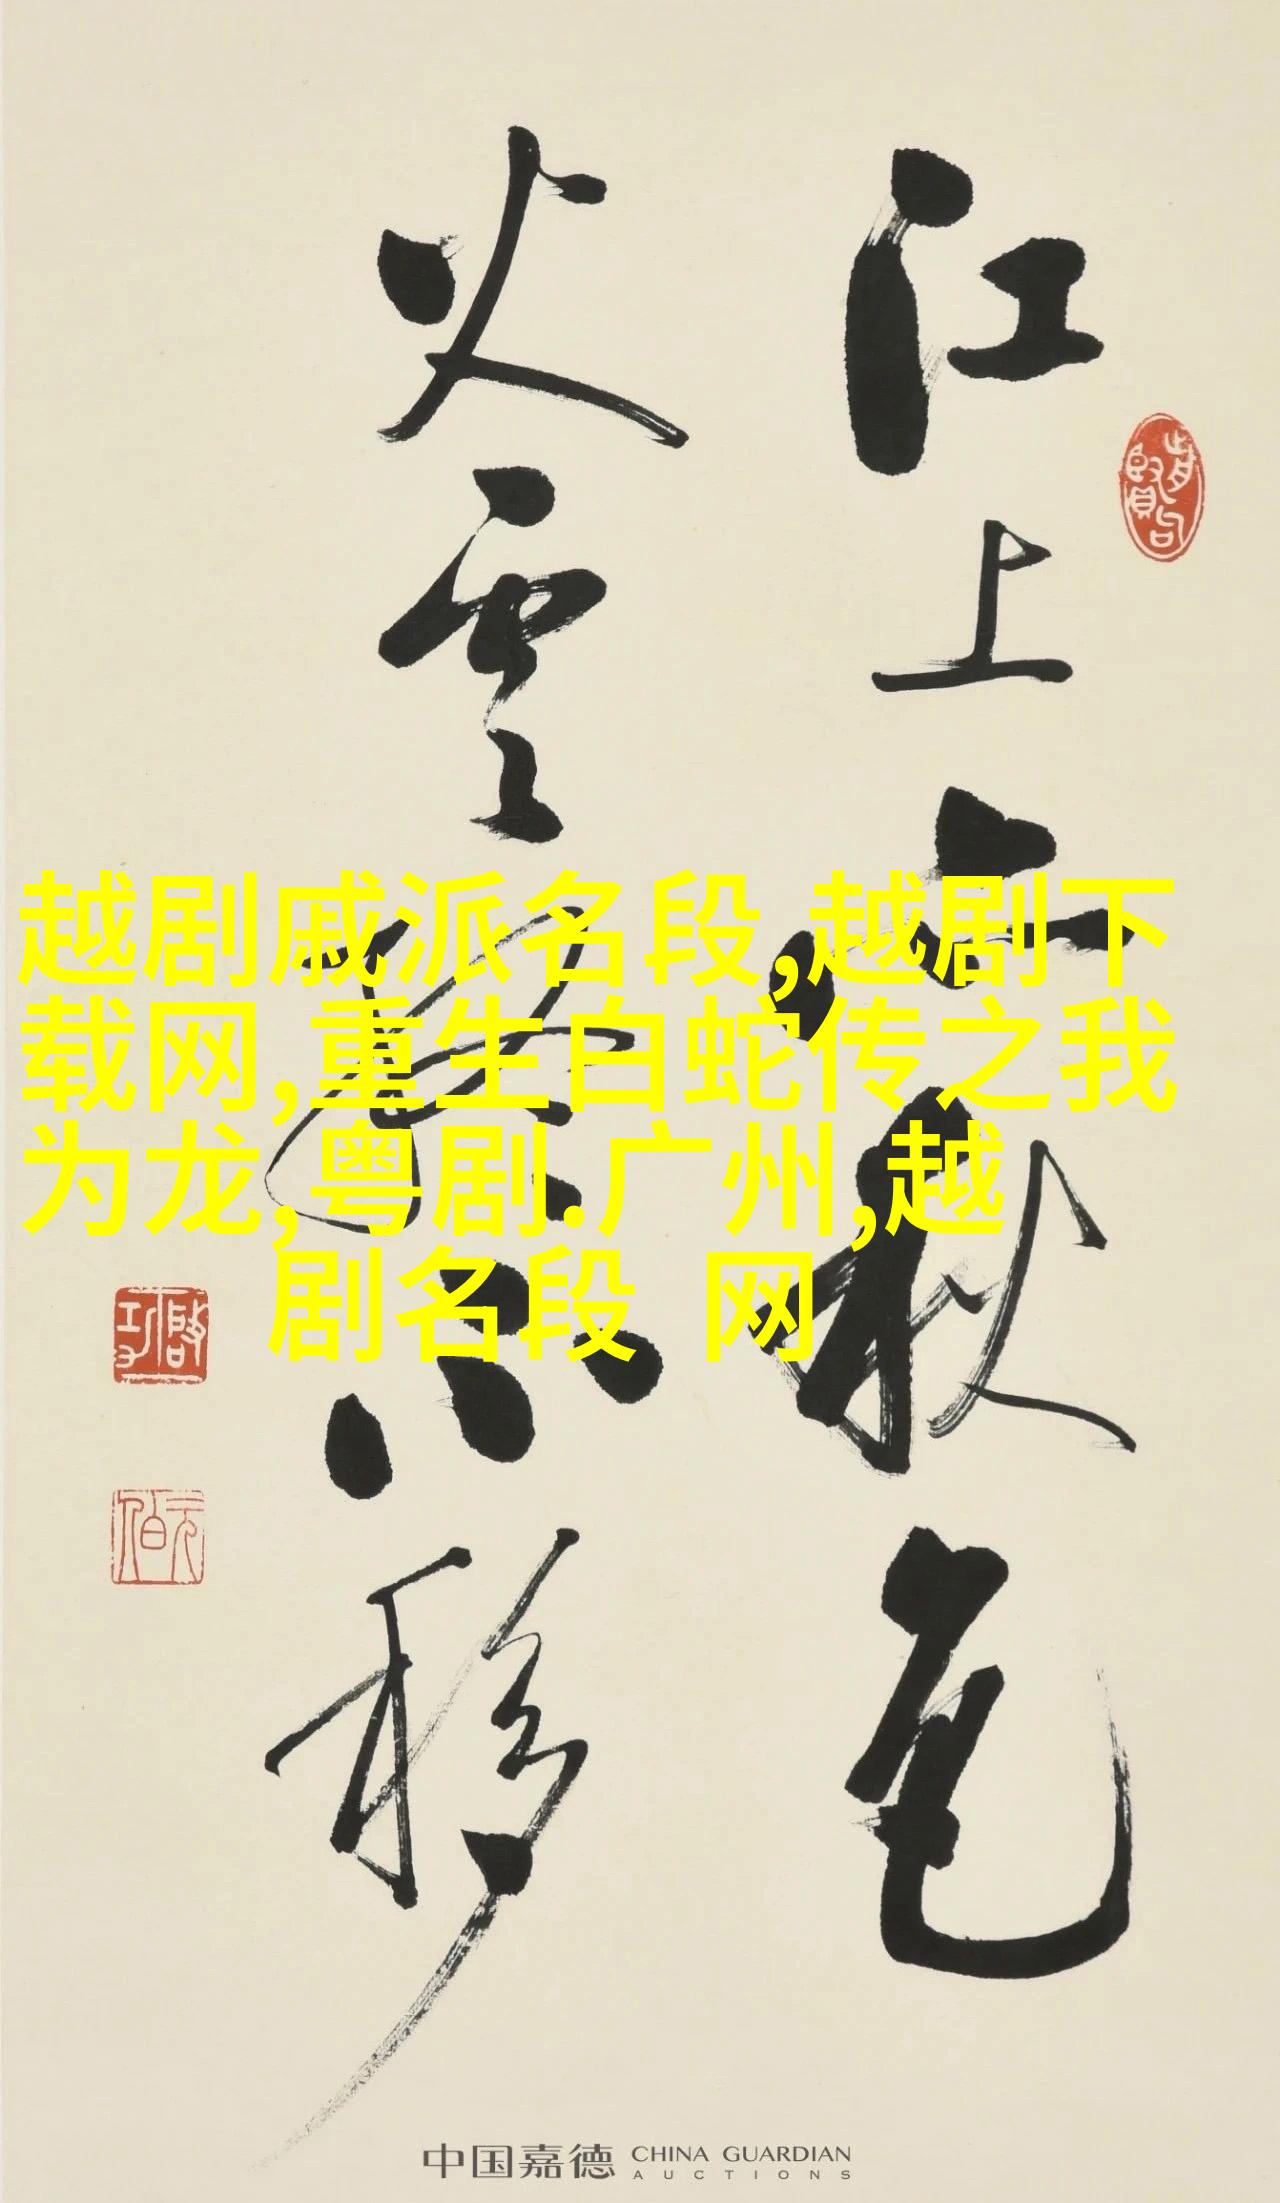 江上亦秋色
火雲終不移
越剧戚派名段,越剧下
载网,重生白蛇传之我
为龙,粤剧.广州,越
剧名段 网
啓功
元白
中国嘉德 CHINA GUARDIAN
AUCTIONS